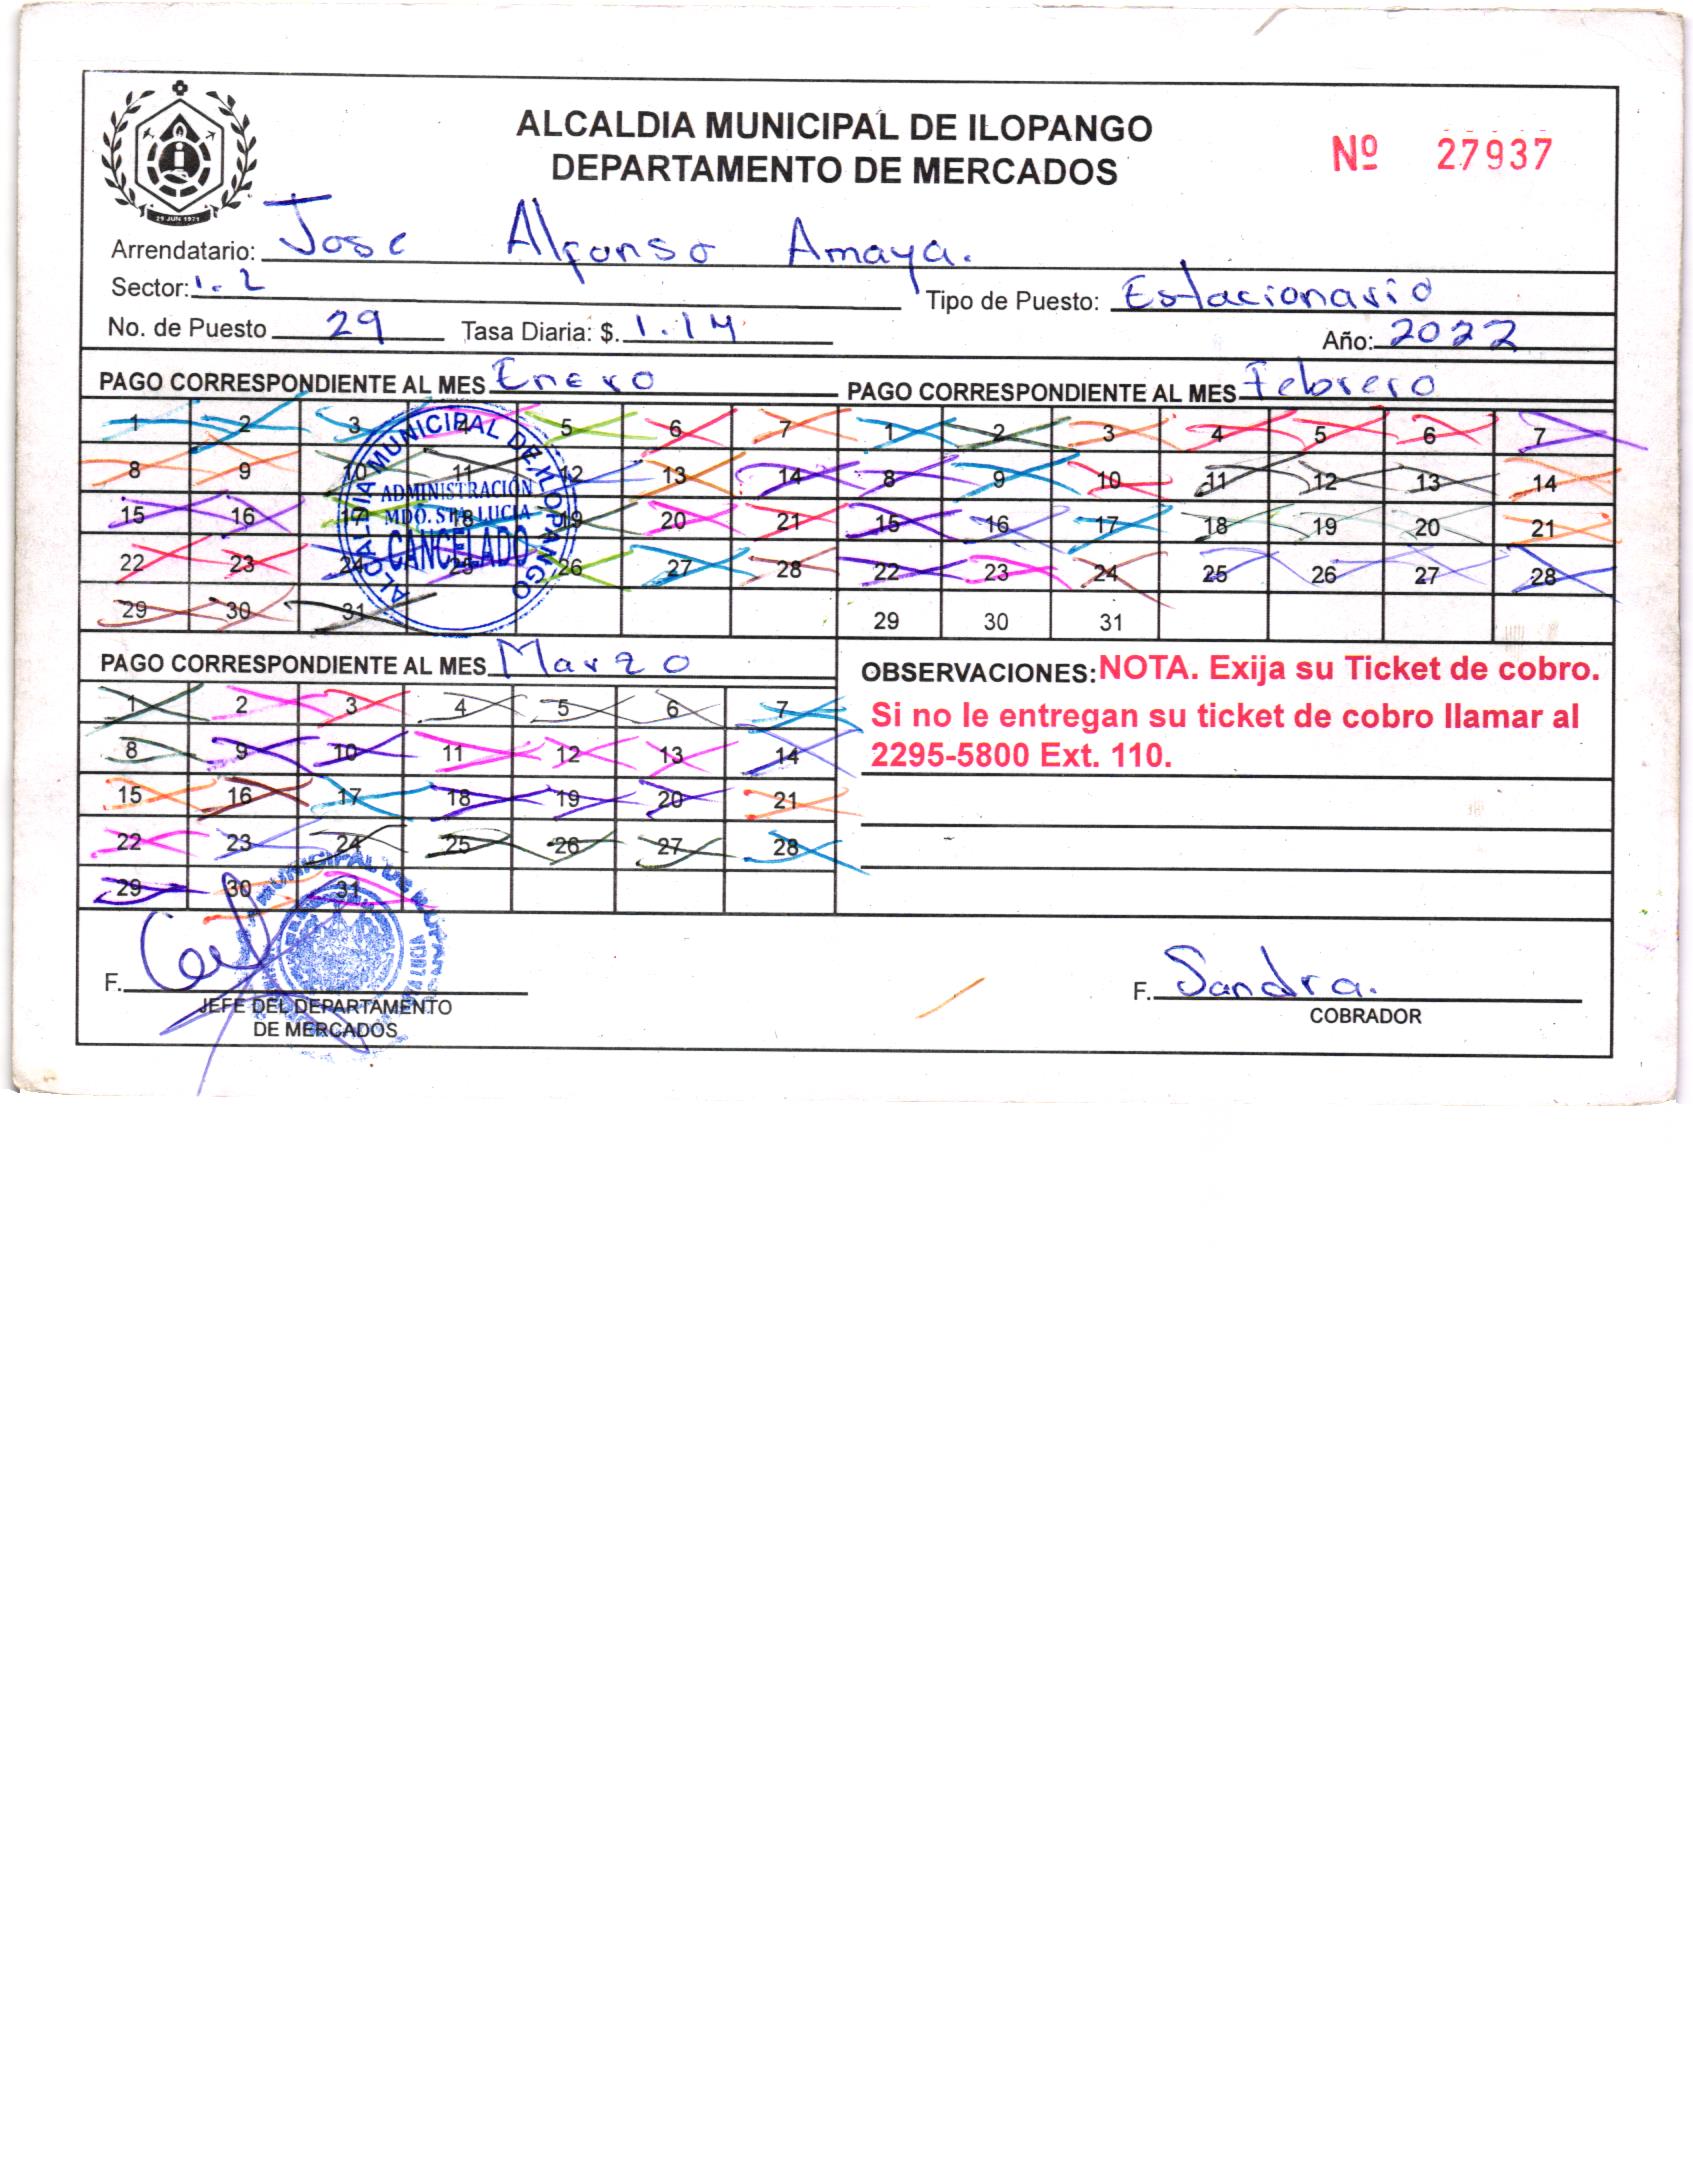 ALCALDIA MUNICIPAL DE ILOPANGO
DEPARTAMENTO DE MERCADOS
Nº 27937
29 JUN 1971
Arrendatario: Jose Alfonso Amaya.
Sector: 1.2 Tipo de Puesto: Estacionario
No. de Puesto 29 Tasa Diaria: $. 1.14 Año: 2022
PAGO CORRESPONDIENTE AL MES Enero
1 2 3 4 5 6 7
8 9 10 11 12 13 14
15 16 17 18 19 20 21
22 23 24 25 26 27 28
29 30 31
ALCALDIA MUNICIPAL DE ILOPANGO
ADMINISTRACIÓN
MDO. STA. LUCIA
CANCELADO
PAGO CORRESPONDIENTE AL MES Febrero
1 2 3 4 5 6 7
8 9 10 11 12 13 14
15 16 17 18 19 20 21
22 23 24 25 26 27 28
29 30 31
PAGO CORRESPONDIENTE AL MES Marzo
1 2 3 4 5 6 7
8 9 10 11 12 13 14
15 16 17 18 19 20 21
22 23 24 25 26 27 28
29 30 31
OBSERVACIONES: NOTA. Exija su Ticket de cobro.
Si no le entregan su ticket de cobro llamar al
2295-5800 Ext. 110.
F.
JEFE DEL DEPARTAMENTO
DE MERCADOS
MUNICIPAL DE
F. Sandra.
COBRADOR